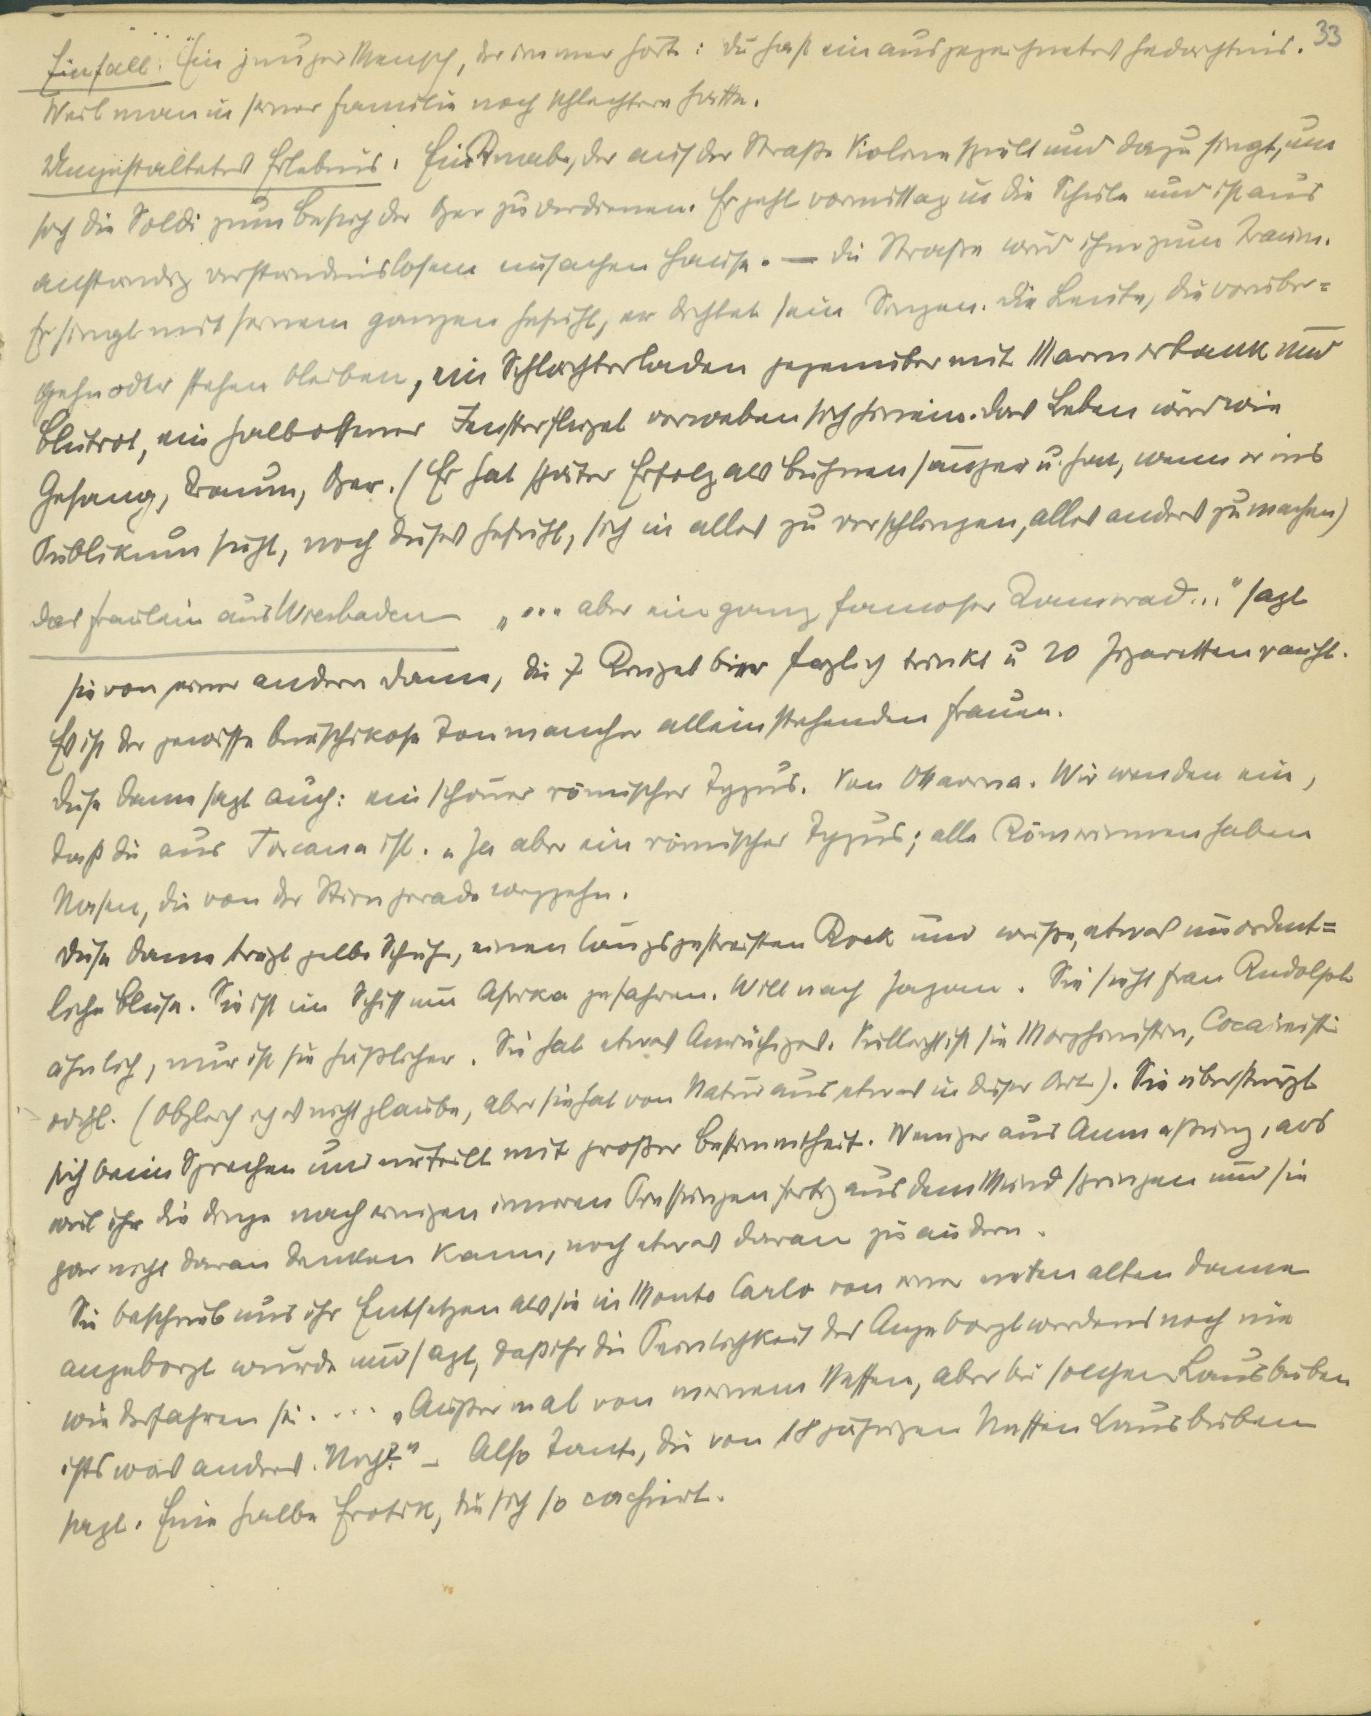 33
Einfall: Ein junger Mensch, der immer hört: du hast ein ausgezeichnetes Gedächtnis.
Weil man in seiner Familie noch schlechtere hatte.
Umgestaltetes Erlebnis. Ein Knabe, der auf der Straße Violine spielt und dazu singt, um
sich die Soldi zum Besuch der Oper zu verdienen. Er geht vormittag in die Schule und ist aus
anständig verständnislosem einfachen Hause. — Die Strasse wird ihm zum Traum.
Er singt mit seinem ganzen Gefühl, er dichtet sein Singen. Die Leute, die vorüber=
gehn oder stehen bleiben, ein Schlächterladen gegenüber mit Marmorbank und
Blutrot, ein halboffener Fensterflügel verweben sich hinein. Das Leben wird wie
Gesang, Traum, Oper. (Er hat später Erfolg als Bühnensänger u. hat, wenn er ins
Publikum sieht, noch dieses Gefühl, sich in alles zu verschlingen, alles anders zu machen)
Das Fräulein aus Wiesbaden „... aber ein ganz famoser Kamerad..." sagt
sie von einer andern Dame, die 7 Krügel Bier täglich trinkt u 20 Zigaretten raucht.
Es ist der gewisse burschikose Ton mancher alleinstehenden Frauen.
Diese Dame sagt auch: ein schöner römischer Typus. Von Ottavina. Wir wenden ein,
daß die aus Toscana ist. „Ja aber ein römischer Typus; alle Römerinnen haben
Nasen, die von der Stirn gerade weggehn.
Diese Dame trägt gelbe Schuhe, einen längsgestreiften Rock und weiße, etwas unordent=
liche Bluse. Sie ist im Schiff um Afrika gefahren. Will nach Japan. Sie sieht Frau Rudolph
ähnlich, nur ist sie häßlicher. Sie hat etwas Anrüchiges. Vielleicht ist sie Morphinistin, Cocainisti
odgl. (Obgleich ich es nicht glaube, aber sie hat von Natur aus etwas in dieser Art). Sie überstürzt
sich beim Sprechen und urteilt mit großer Bestimmtheit. Weniger aus Anmaßung, als
weil ihr die Dinge nach einigen inneren Pressungen fertig aus dem Mund springen und sie
gar nicht daran denken kann, noch etwas daran zu ändern.
Sie beschrieb uns ihr Entsetzen als sie in Monte Carlo von einer netten alten Dame
angeborgt wurde und sagt, daß ihr die Peinlichkeit des Angeborgtwerdens noch nie
wiederfahren sei. ... „Außer mal von meinem Neffen, aber bei solchen Lausbuben
ists was anders. Nicht?" – Also Tante, die von 18 jährigen Neffen Lausbuben
sagt. Eine halbe Erotik, die sich so cachiert.